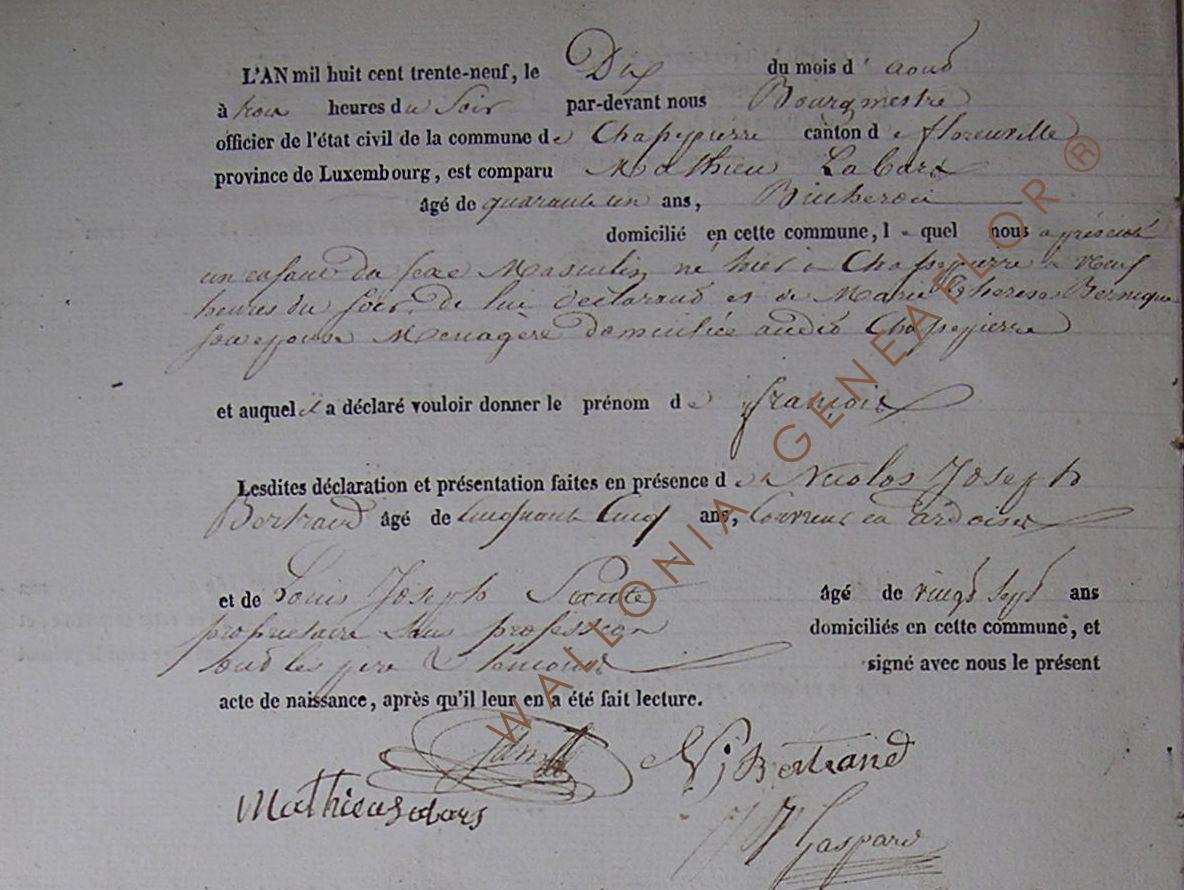 L'AN mil huit cent trente-neuf, le Dix du mois d'aoud
à trois heures du Soir par-devant nous Bourgmestre
officier de l'état civil de la commune de Chassepierre canton de florenville
province de Luxembourg, est comparu Mathieu Labars
âgé de quarante un ans, Bucheron
domicilié en cette commune, le quel nous a présenté
un enfant du sexe Masculin né hier à Chassepierre à Neuf
heures du Soir, de lui declarand et de Marie Therese Bernique
son epouse Menagère domiciliée audid Chassepierre
et auquel il a déclaré vouloir donner le prénom de françois
Lesdites déclaration et présentation faites en présence de Nicolas Joseph
Bertrand âgé de Cinquante Cinq ans, Couvreur en ardoises
et de Louis Joseph âgé de vingd sepd ans
proprietaire sans profession domiciliés en cette commune, et
ond les pere & temoins signé avec nous le présent
acte de naissance, après qu'il leur en a été fait lecture.
NJ Bertrand
Mathieu Labars
Gaspard
WALLONIA GENEAFLOR ®